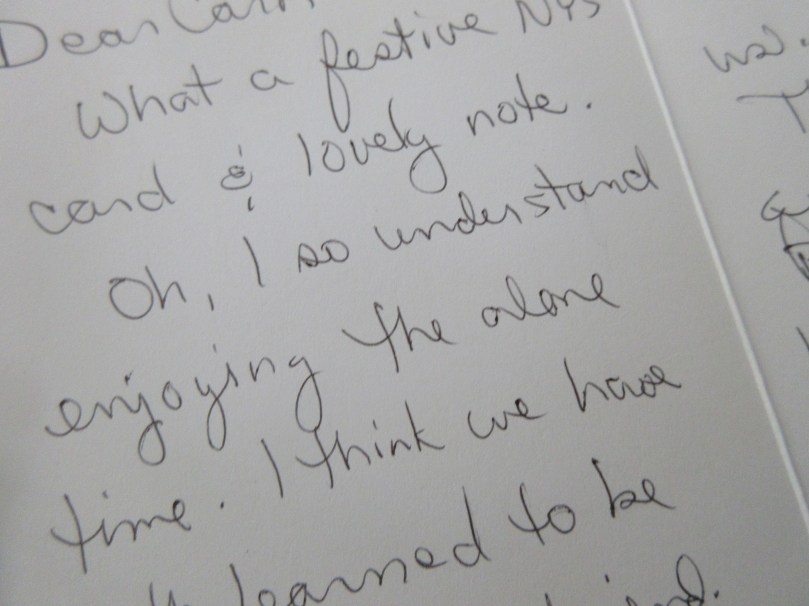 Dear
What a festive NYs
card & lovely note.
Oh, I so understand
enjoying the alone
time. I think we have
learned to be
us.